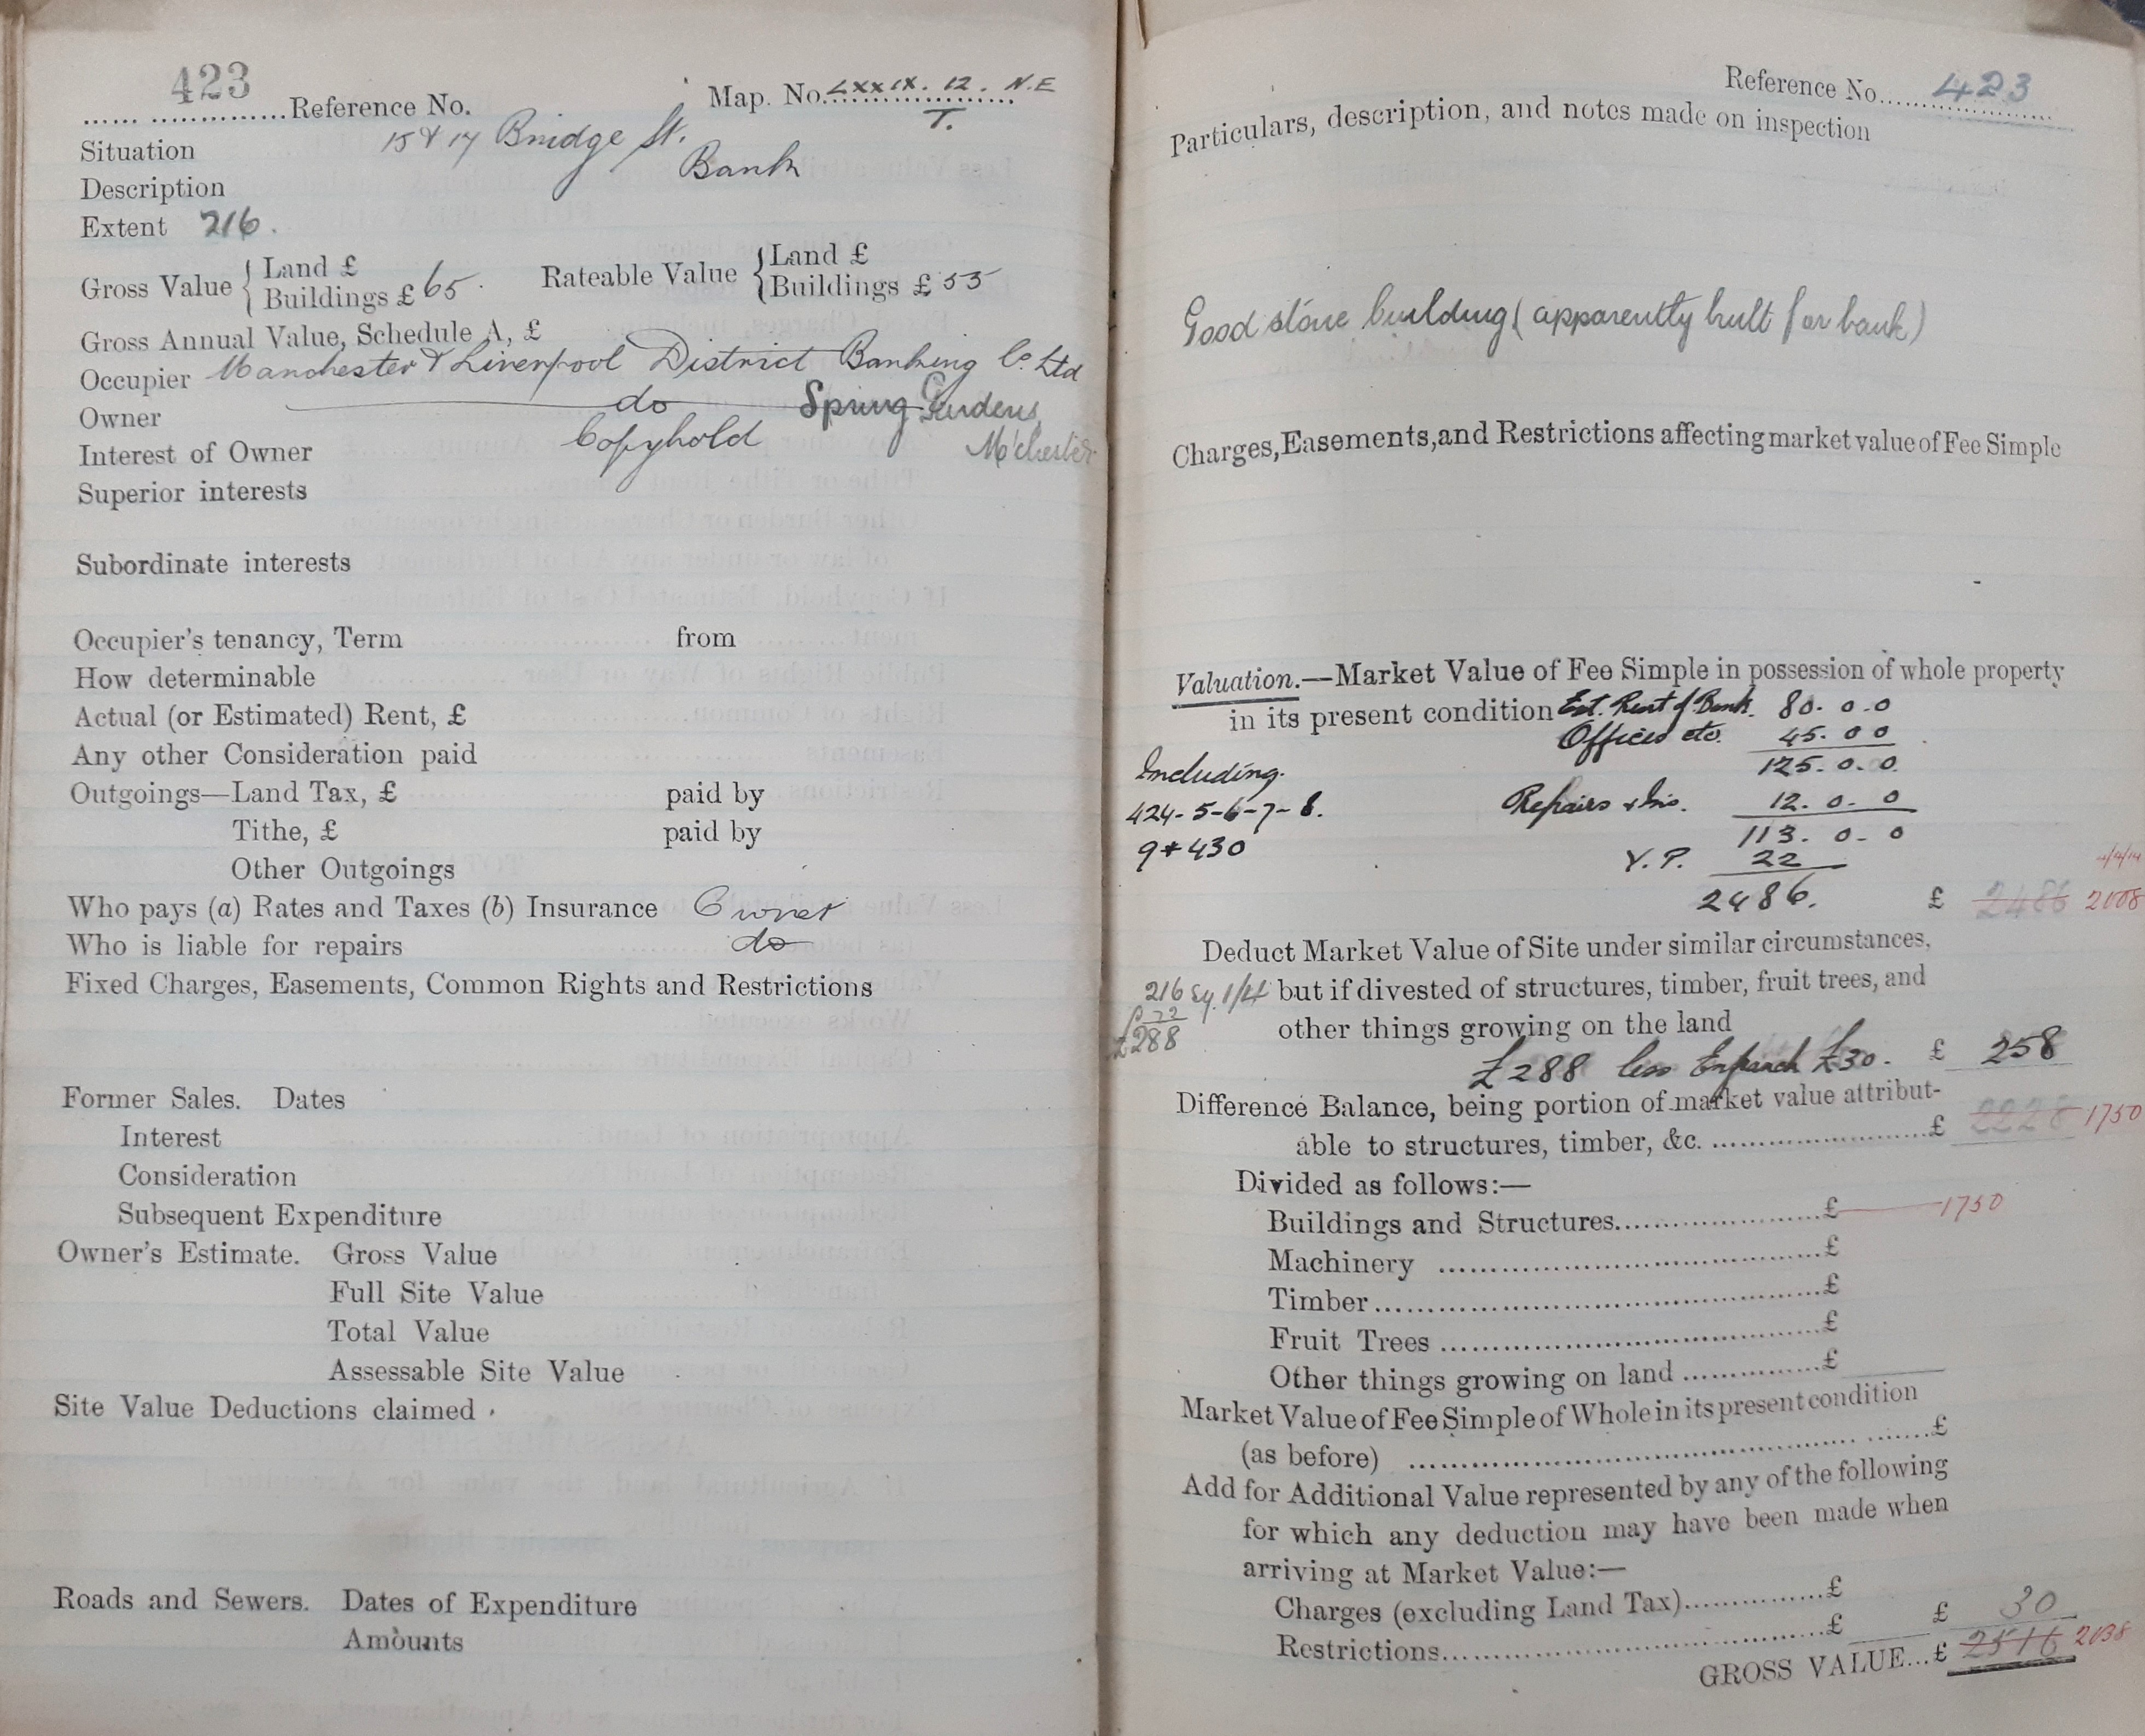 423
...... ..............Reference No.
Map. No. LXXIX. 12. N.E
T.
Situation 15 & 17 Bridge St.
Description Bank
Extent 216.
Gross Value { Land £
Buildings £ 65.
Rateable Value { Land £
Buildings £ 55
Gross Annual Value, Schedule A, £
Occupier Manchester & Liverpool District Banking Co. Ltd
Owner do Spring Gardens,
M'chester
Interest of Owner Copyhold
Superior interests
Subordinate interests
Occupier's tenancy, Term from
How determinable
Actual (or Estimated) Rent, £
Any other Consideration paid
Outgoings—Land Tax, £ paid by
Tithe, £ paid by
Other Outgoings
Who pays (a) Rates and Taxes (b) Insurance Owner
Who is liable for repairs do
Fixed Charges, Easements, Common Rights and Restrictions
Former Sales. Dates
Interest
Consideration
Subsequent Expenditure
Owner's Estimate. Gross Value
Full Site Value
Total Value
Assessable Site Value
Site Value Deductions claimed
Roads and Sewers. Dates of Expenditure
Amounts
Reference No. 423
Particulars, description, and notes made on inspection
Good stone building (apparently built for bank)
Charges, Easements, and Restrictions affecting market value of Fee Simple
Valuation.—Market Value of Fee Simple in possession of whole property
in its present condition Est. Rent of Bank. 80. 0. 0
Offices etc. 45. 0 0
125. 0. 0.
Including.
424-5-6-7-8.
9 + 430
Repairs & Ins. 12. 0. 0
113. 0. 0
Y. P. 22
2486.
£ 2486 2008
Deduct Market Value of Site under similar circumstances,
216 Sq. 1/4 but if divested of structures, timber, fruit trees, and
£288 other things growing on the land
£288 less Enfranch £30. £ 258
Difference Balance, being portion of market value attribut-
able to structures, timber, &c. ........................£ 2228 1750
Divided as follows:—
Buildings and Structures......................£ 1750
Machinery ......................................£
Timber............................................£
Fruit Trees ......................................£
Other things growing on land ..............£
Market Value of Fee Simple of Whole in its present condition
(as before) ............................................................£
Add for Additional Value represented by any of the following
for which any deduction may have been made when
arriving at Market Value:—
Charges (excluding Land Tax)...............£
Restrictions.......................................£ £ 30
GROSS VALUE...£ 2516 2038